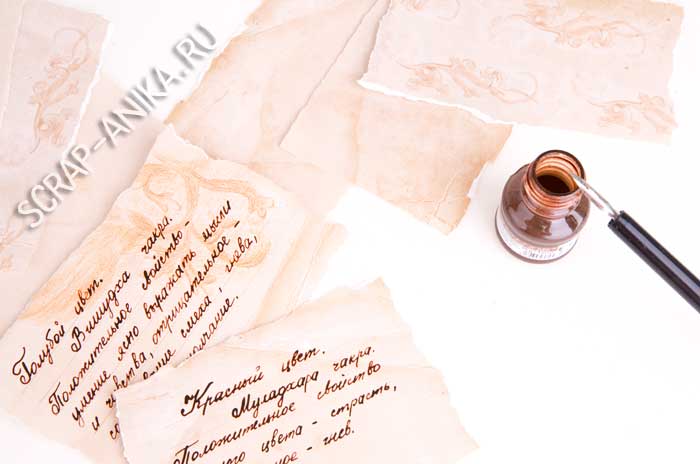 SCRAP-ANIKA.RU
Голубой цвет.
Вишудха чакра.
Положительное свойство-
умение ясно выражать мысли
и чувства, отрицательное-
смеха, гнева,
молчание.
Красный цвет.
Муладхара чакра.
Положительное свойство
цвета - страсть,
- гнев.